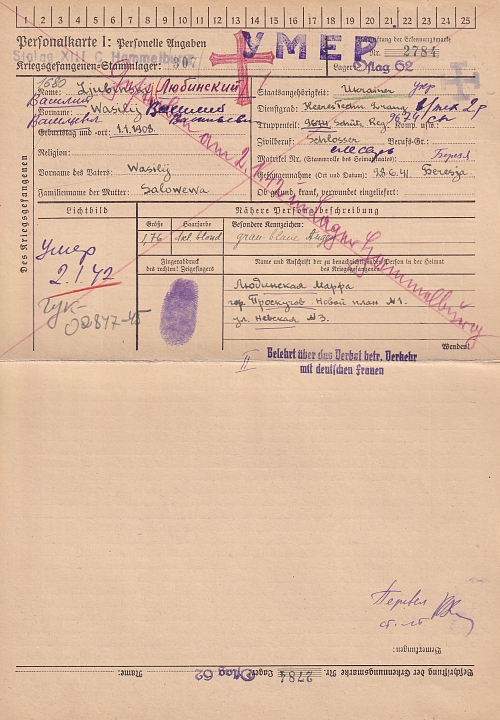 1 2 3 4 5 6 7 8 9 10 11 12 13 14 15 16 17 18 19 20 21 22 23 24 25
Personalkarte I: Personelle Angaben
УМЕР.
Beschriftung der Erkennungsmarke
Stalag XIII C Hammelburg
Nr. 2784
Kriegsgefangenen-Stammlager: 307
Lager Oflag 62
Des Kriegsgefangenen
Name: Ljubinsky Любинский
Staatsangehörigkeit: Ukrainer укр
Василий
Vorname: Wasilij Василий
Dienstgrad:
Васильев Васильевич
Truppenteil:
Geburtstag und -ort: 1.1.1908.
Zivilberuf: Schlosser Berufs-Gr.:
слесарь
Religion:
Matrikel Nr. (Stammrolle des Heimatstaates):
Береза
Vorname des Vaters: Wasilij
Gefangennahme (Ort und Datum): 28.6.41. Beresja
Familienname der Mutter: Salowewa
Ob gesund, krank, verwundet eingeliefert:
am 2.1.42 im Lager Hammelburg
Lichtbild
Nähere Personalbeschreibung
Größe Haarfarbe Besondere Kennzeichen:
1,76 blond grau-blaue Augen
Умер
2.1.42
гук-
02847-45
Fingerabdruck
des rechten! Zeigefingers
Name und Anschrift der zu benachrichtigenden Person in der Heimat
des Kriegsgefangenen
Любинская Марфа
гор. Проскуров. Новый план №1.
ул. Невская №3.
Wenden!
II
Belehrt über das Verbot betr. Verkehr
mit deutschen Frauen
Перевел
Bemerkungen:
Beschriftung der Erkennungsmarke Nr. 2784 Lager: Oflag 62 Name: